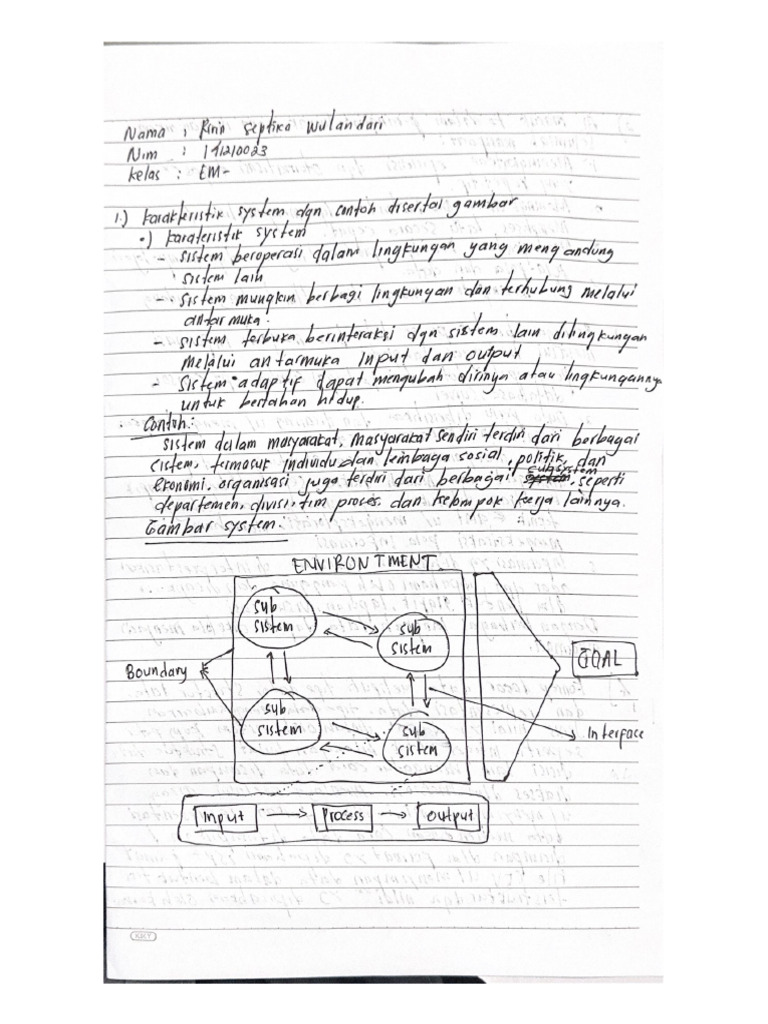 Nama : Ririn Septika Wulandari
Nim : 191210023
kelas : EM-
1.) karakteristik system dgn contoh disertai gambar
•) karateristik system
- sistem beroperasi dalam lingkungan yang mengandung
sistem lain
- sistem mungkin berbagi lingkungan dan terhubung melalui
antarmuka.
- sistem terbuka berinteraksi dgn sistem lain dilingkungan
melalui antarmuka input dan output
- Sistem adaptif dapat mengubah dirinya atau lingkungannya
untuk bertahan hidup.
Contoh:
sistem dalam masyarakat, masyarakat sendiri terdiri dari berbagai
sistem, termasuk individu dan lembaga sosial, politik, dan
ekonomi. organisasi juga terdiri dari berbagai subsystem, seperti
departemen, divisi, tim proces, dan kelompok kerja lainnya.
Gambar system.
ENVIRONTMENT
sub
sistem
sub
sistem
GOAL
Boundary
sub
sistem
sub
sistem
Interface
Input
process
output